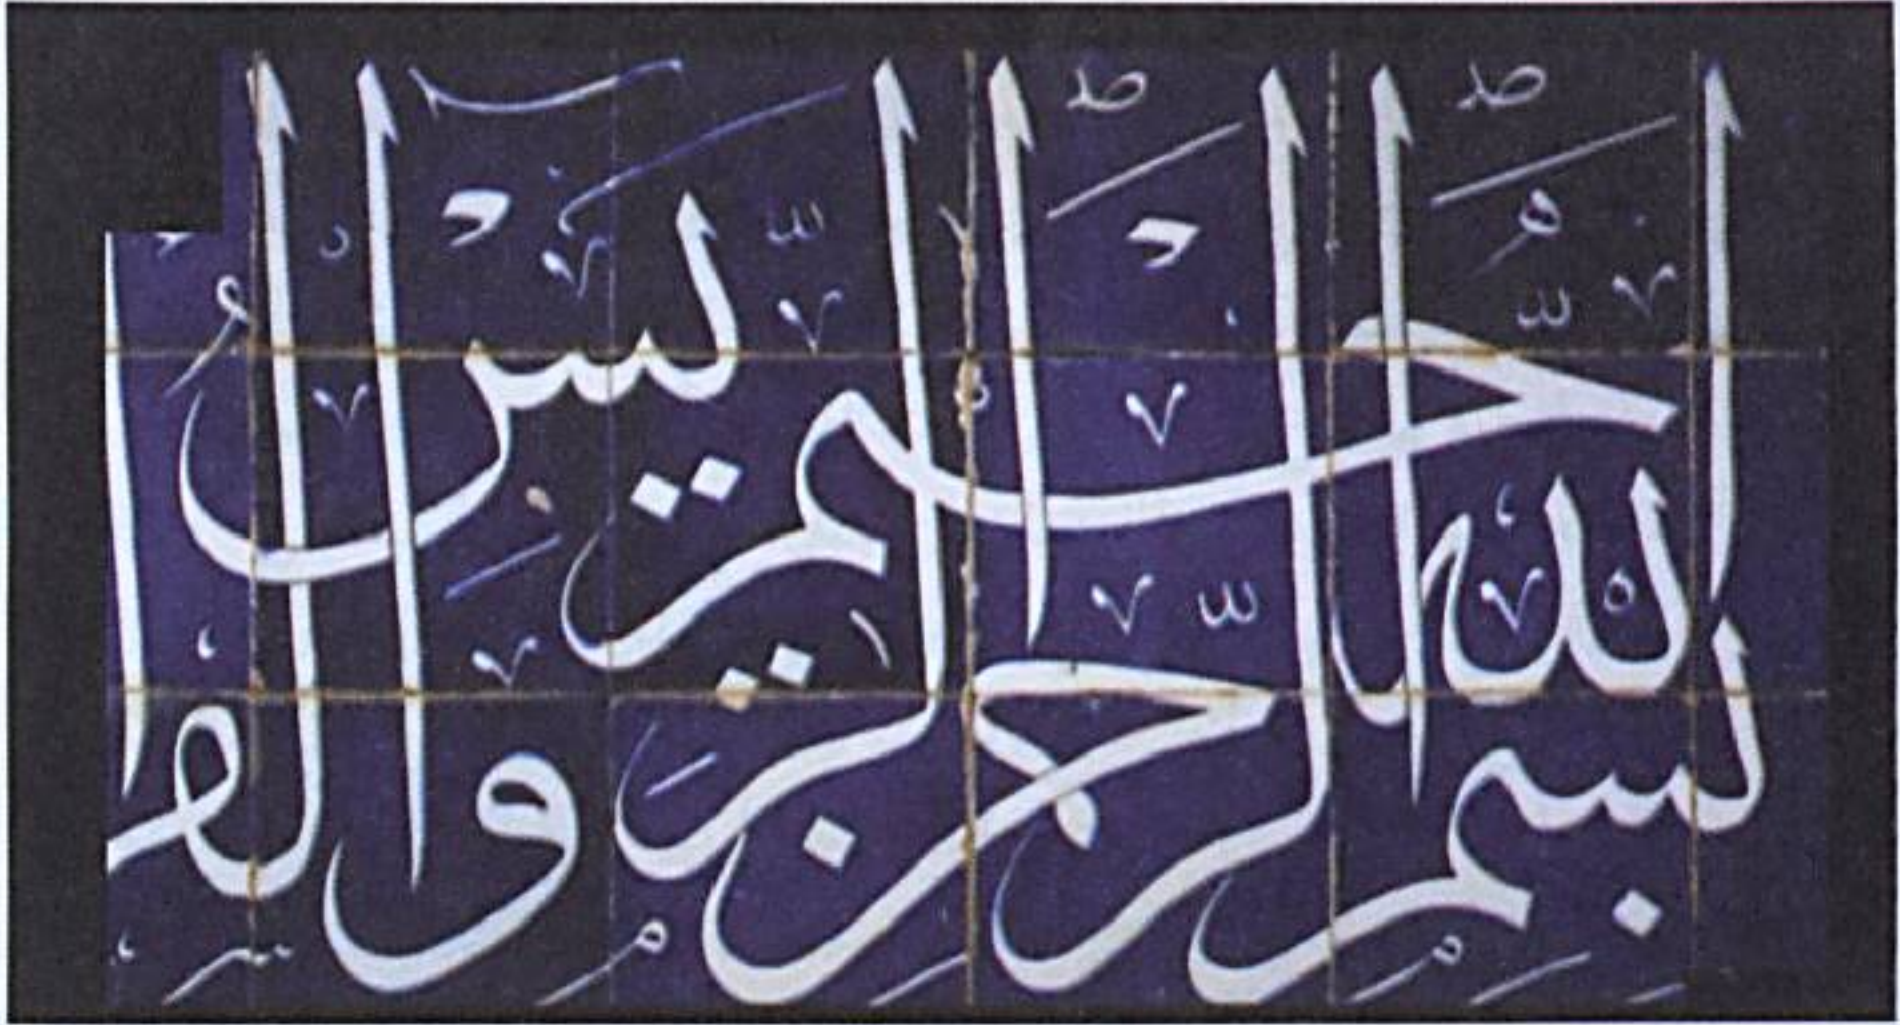 بسم الله الرحمن الرحيم يس والقر